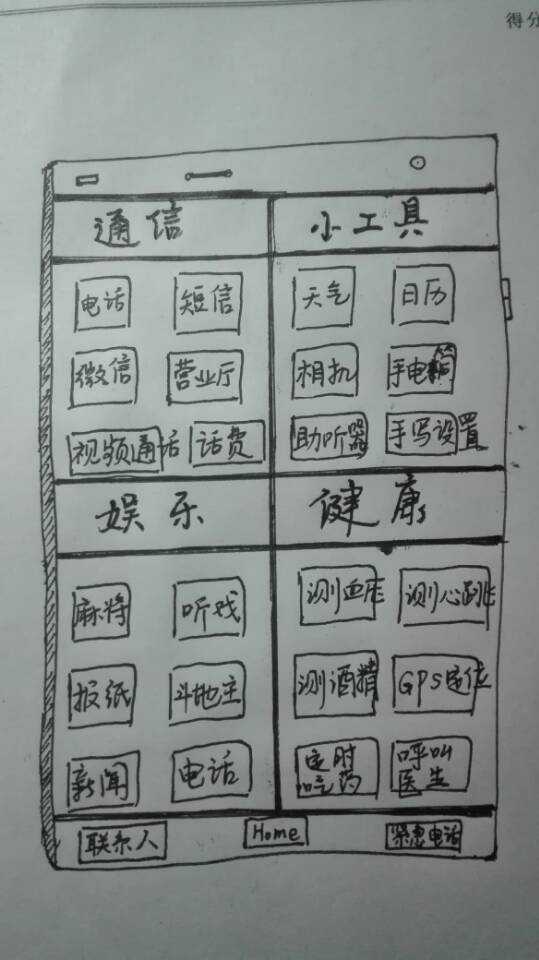 得分
通信 小工具
电话 短信 天气 日历
微信 营业厅 相机 手电筒
视频通话 话费 助听器 手写设置
娱乐 健康
麻将 听戏 测血压 测心跳
报纸 斗地主 测酒精 GPS定位
新闻 电话 定时吃药 呼叫医生
联系人 Home 紧急电话